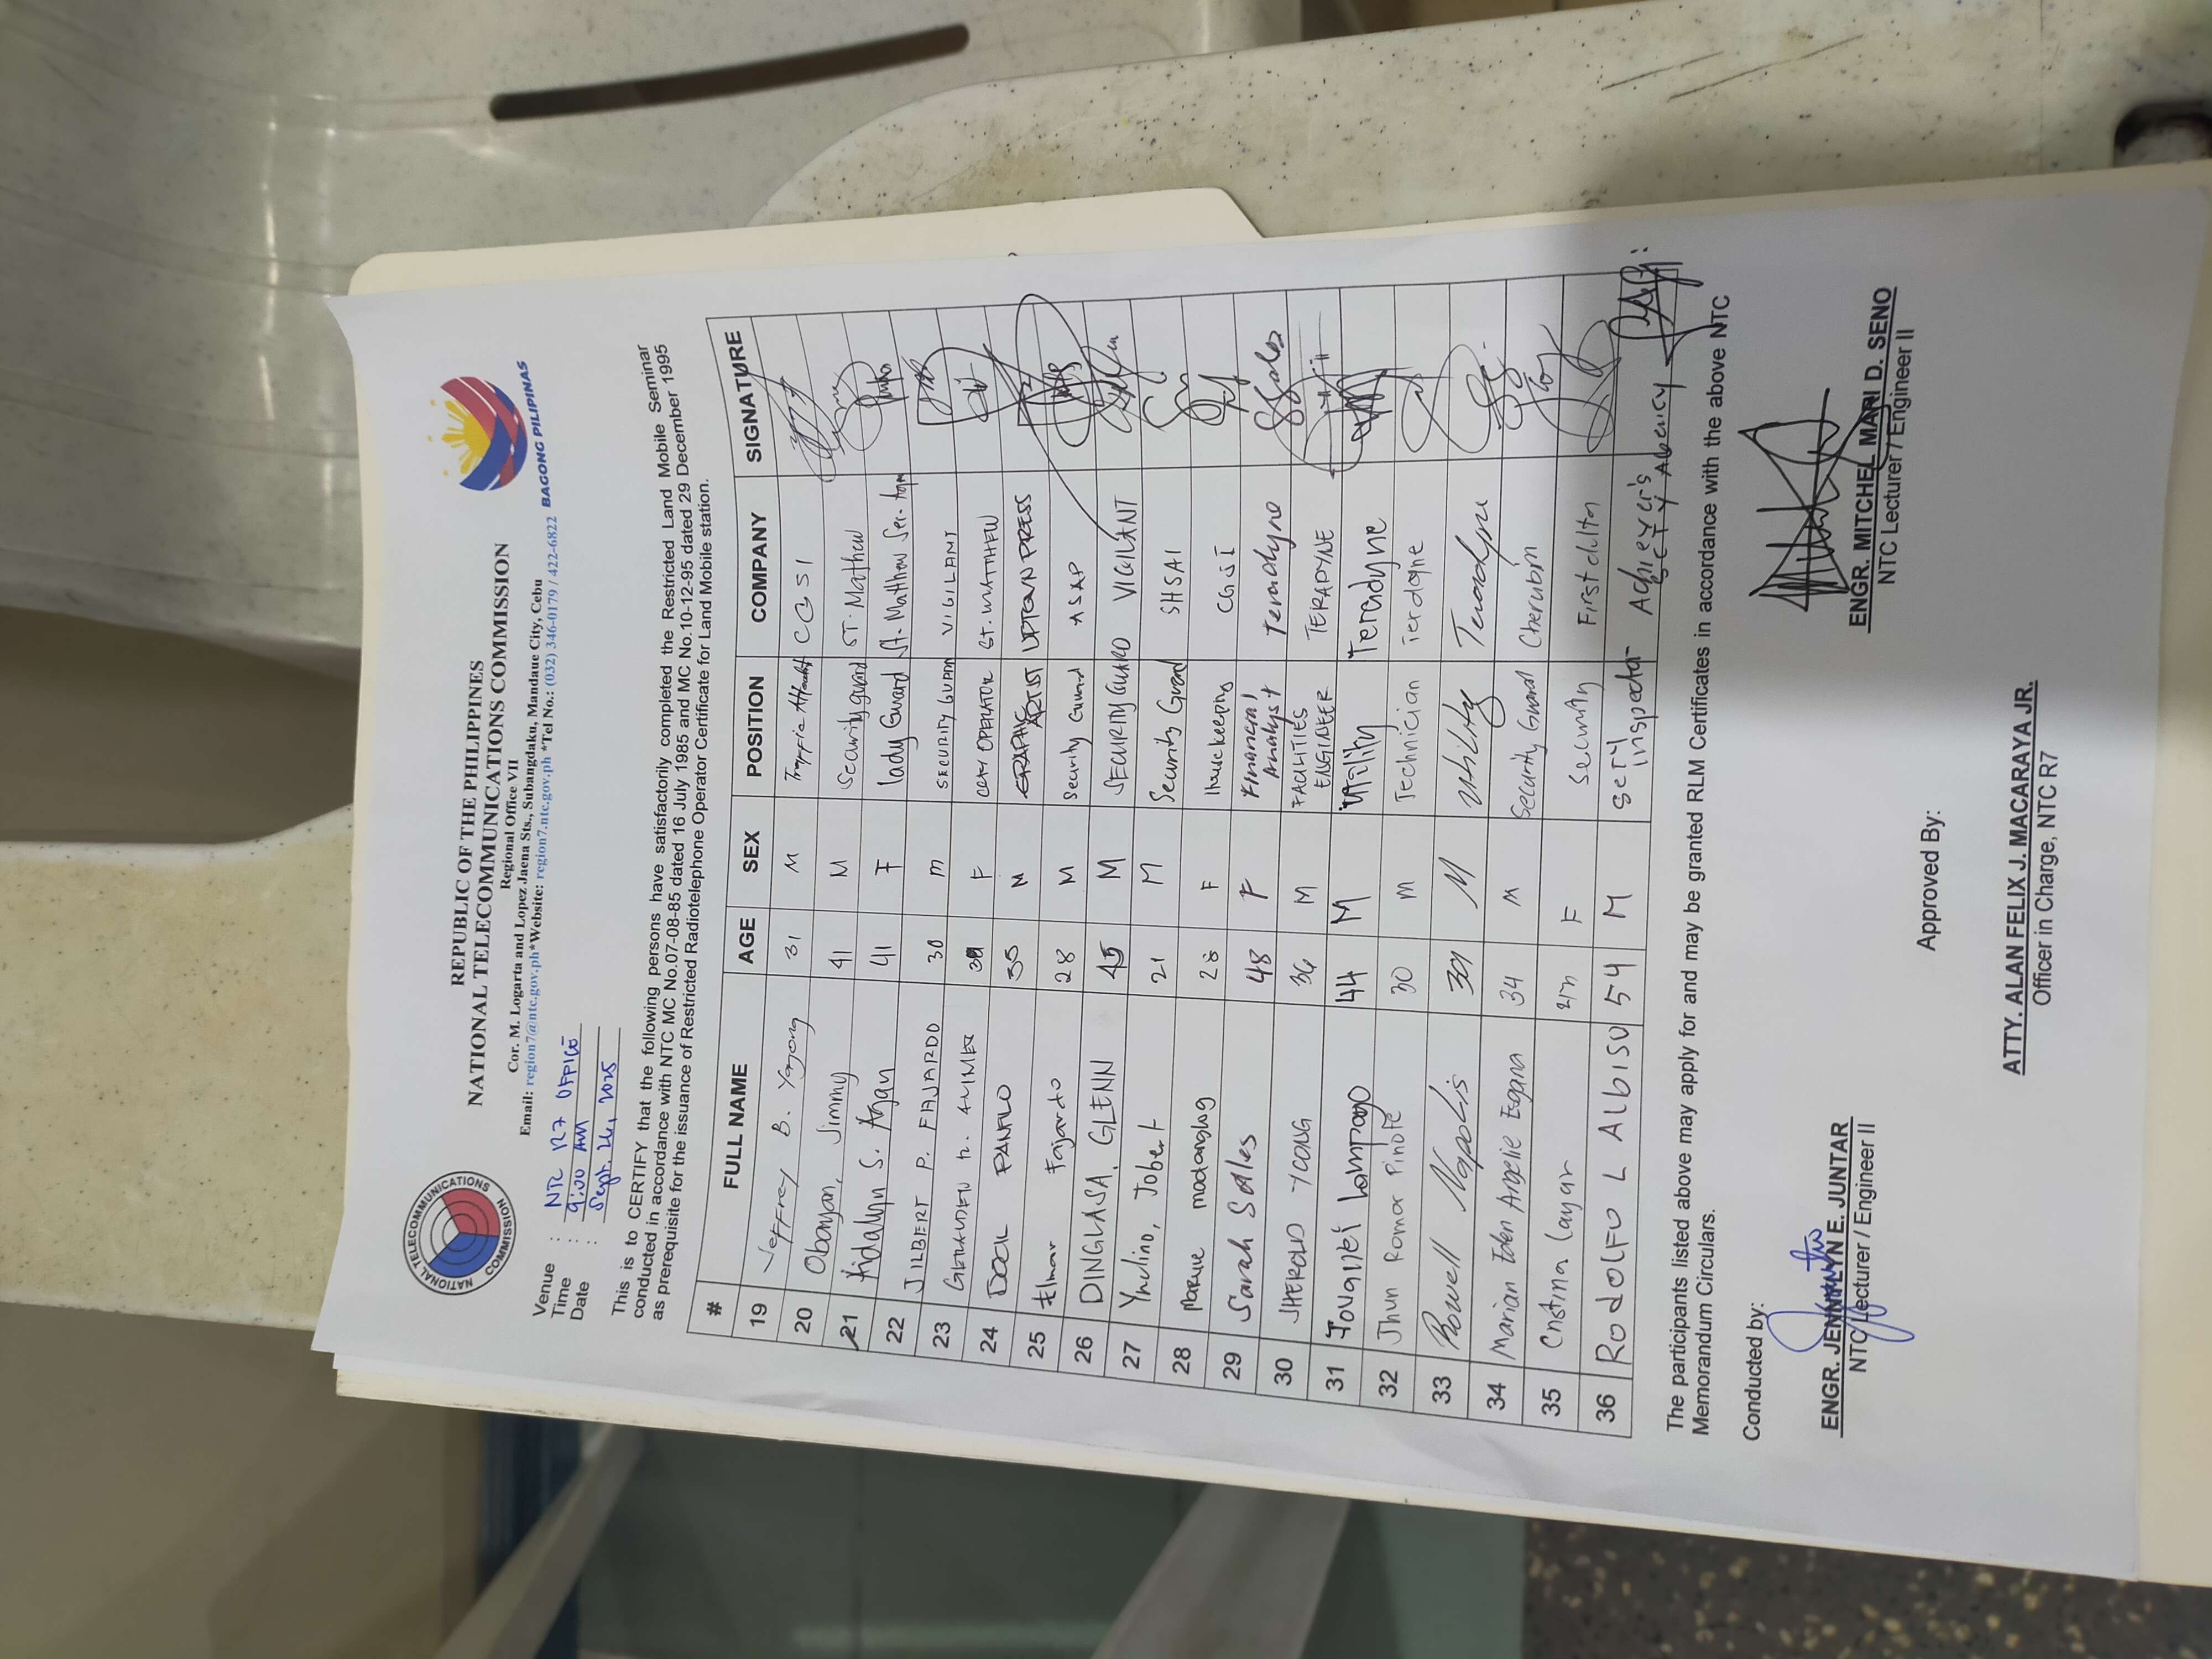 REPUBLIC OF THE PHILIPPINES
NATIONAL TELECOMMUNICATIONS COMMISSION
Regional Office VII
Cor. M. Logarta and Lopez Jaena Sts., Subangdaku, Mandaue City, Cebu
Email: region7@ntc.gov.ph*Website: region7.ntc.gov.ph *Tel No.: (032) 346-0179 / 422-6822
NATIONAL TELECOMMUNICATIONS COMMISSION
BAGONG PILIPINAS
Venue : NTC R7 OFFICE
Time : 9:00 AM
Date : Sept. 24, 2025
This is to CERTIFY that the following persons have satisfactorily completed the Restricted Land Mobile Seminar
conducted in accordance with NTC MC No.07-08-85 dated 16 July 1985 and MC No.10-12-95 dated 29 December 1995
as prerequisite for the issuance of Restricted Radiotelephone Operator Certificate for Land Mobile station.
# FULL NAME AGE SEX POSITION COMPANY SIGNATURE
19 Jeffrey B. Yagong 31 M Traffic
20 Obanyan, Jimmy 41 M Security guard ST. Mathew
21 S. 41 F lady Guard St. Matthew Ser.
22 JILBERT P. FAJARDO 30 m SECURITY GUARD VIGILANT
23 F CCTV OPERATOR ST. MATTHEW
24 PANFILO 35 M ARTIST UPTOWN PRESS
25 Elmar Fajardo 28 M Security Guard ASAP
26 DINGLASA, GLENN 45 M SECURITY GUARD VIGILANT
27 Jobert 21 M Security Guard SHSAI
28 28 F Housekeeping
29 Sarah Salles 48 F Financial Analyst Teradyne
30 JHEROLD YCONG 36 M FACILITIES ENGINEER TERADYNE
31 44 M Utility Teradyne
32 Jhun Romar 30 M Technician Teradyne
33 Rowell Napolis 39 M Utility Teradyne
34 Marian Eden Angelie 34 M Security Guard Cherubim
35 Cristina Layar F Security First
36 RodolFo L Albiso 54 M Sec'ty Inspector Achiever's Sec'ty Agency
The participants listed above may apply for and may be granted RLM Certificates in accordance with the above NTC
Memorandum Circulars.
Conducted by:
ENGR. JENNILYN E. JUNTAR
NTC Lecturer / Engineer II
ENGR. MITCHEL MARI D. SENO
NTC Lecturer / Engineer II
Approved By:
ATTY. ALAN FELIX J. MACARAYA JR.
Officer in Charge, NTC R7